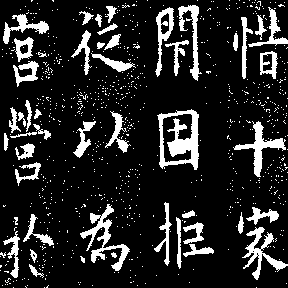 惜十家
閇固拒
從以為
宮營於